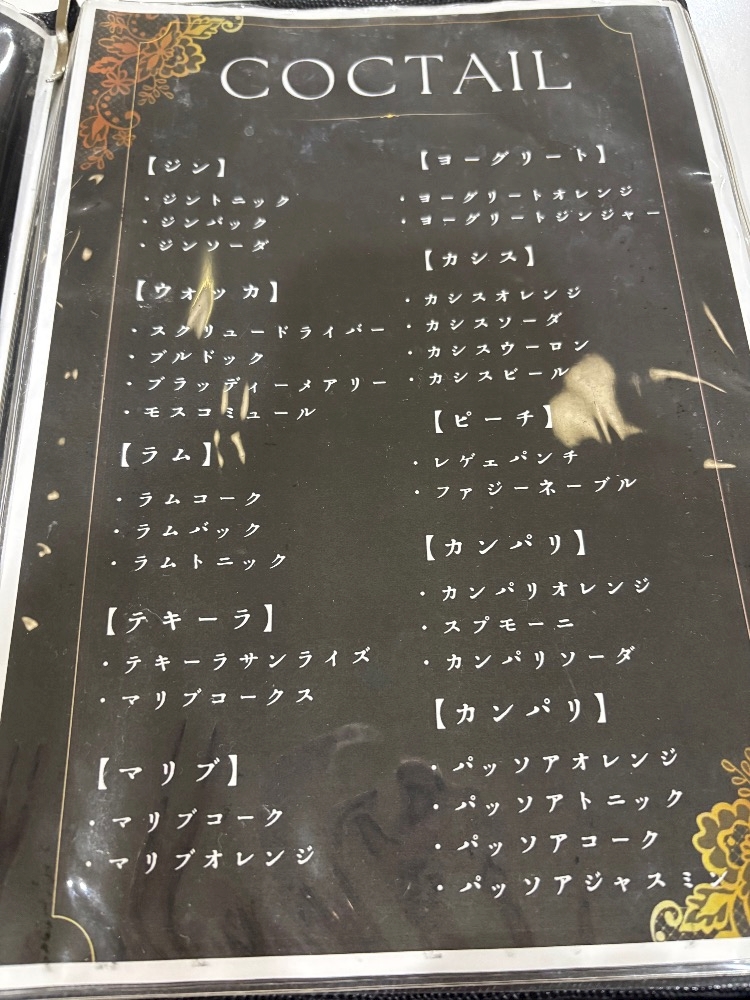 COCTAIL
【ジン】
・ジントニック
・ジンバック
・ジンソーダ
【ウォッカ】
・スクリュードライバー
・ブルドック
・ブラッディーメアリー
・モスコミュール
【ラム】
・ラムコーク
・ラムバック
・ラムトニック
【テキーラ】
・テキーラサンライズ
・マリブコークス
【マリブ】
・マリブコーク
・マリブオレンジ
【ヨーグリート】
・ヨーグリートオレンジ
・ヨーグリートジンジャー
【カシス】
・カシスオレンジ
・カシスソーダ
・カシスウーロン
・カシスビール
【ピーチ】
・レゲェパンチ
・ファジーネーブル
【カンパリ】
・カンパリオレンジ
・スプモーニ
・カンパリソーダ
【カンパリ】
・パッソアオレンジ
・パッソアトニック
・パッソアコーク
・パッソアジャスミン